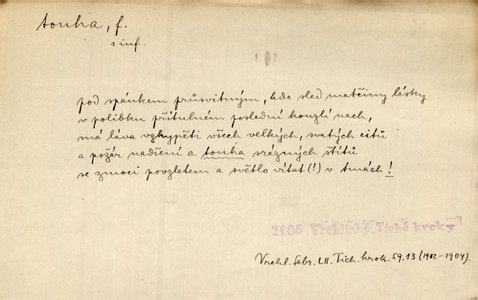 touha, f.
s inf.
pod spánkem průsvitným, kde sled matčiny lásky
v polibku přítulném poslední kouzlí nach,
má láva vzkypěti všech velkých, svatých citů
a požár nadšení a touha srázných štítů
se zmoci povzletem a světlo vítat (!) v tmách!
1905 Vrchlický, Tiché kroky
Vrchl. Sebr. LII. Tich. krok. 59.13 (1902-1904)